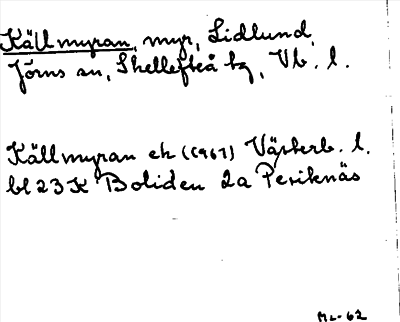 Källmyran, myr, Lidlund,
Jörns sn, Skellefteå tg, Vb. l.
Källmyran ek (1967) Västerb. l.
bl 23 K Boliden 2a Periknäs